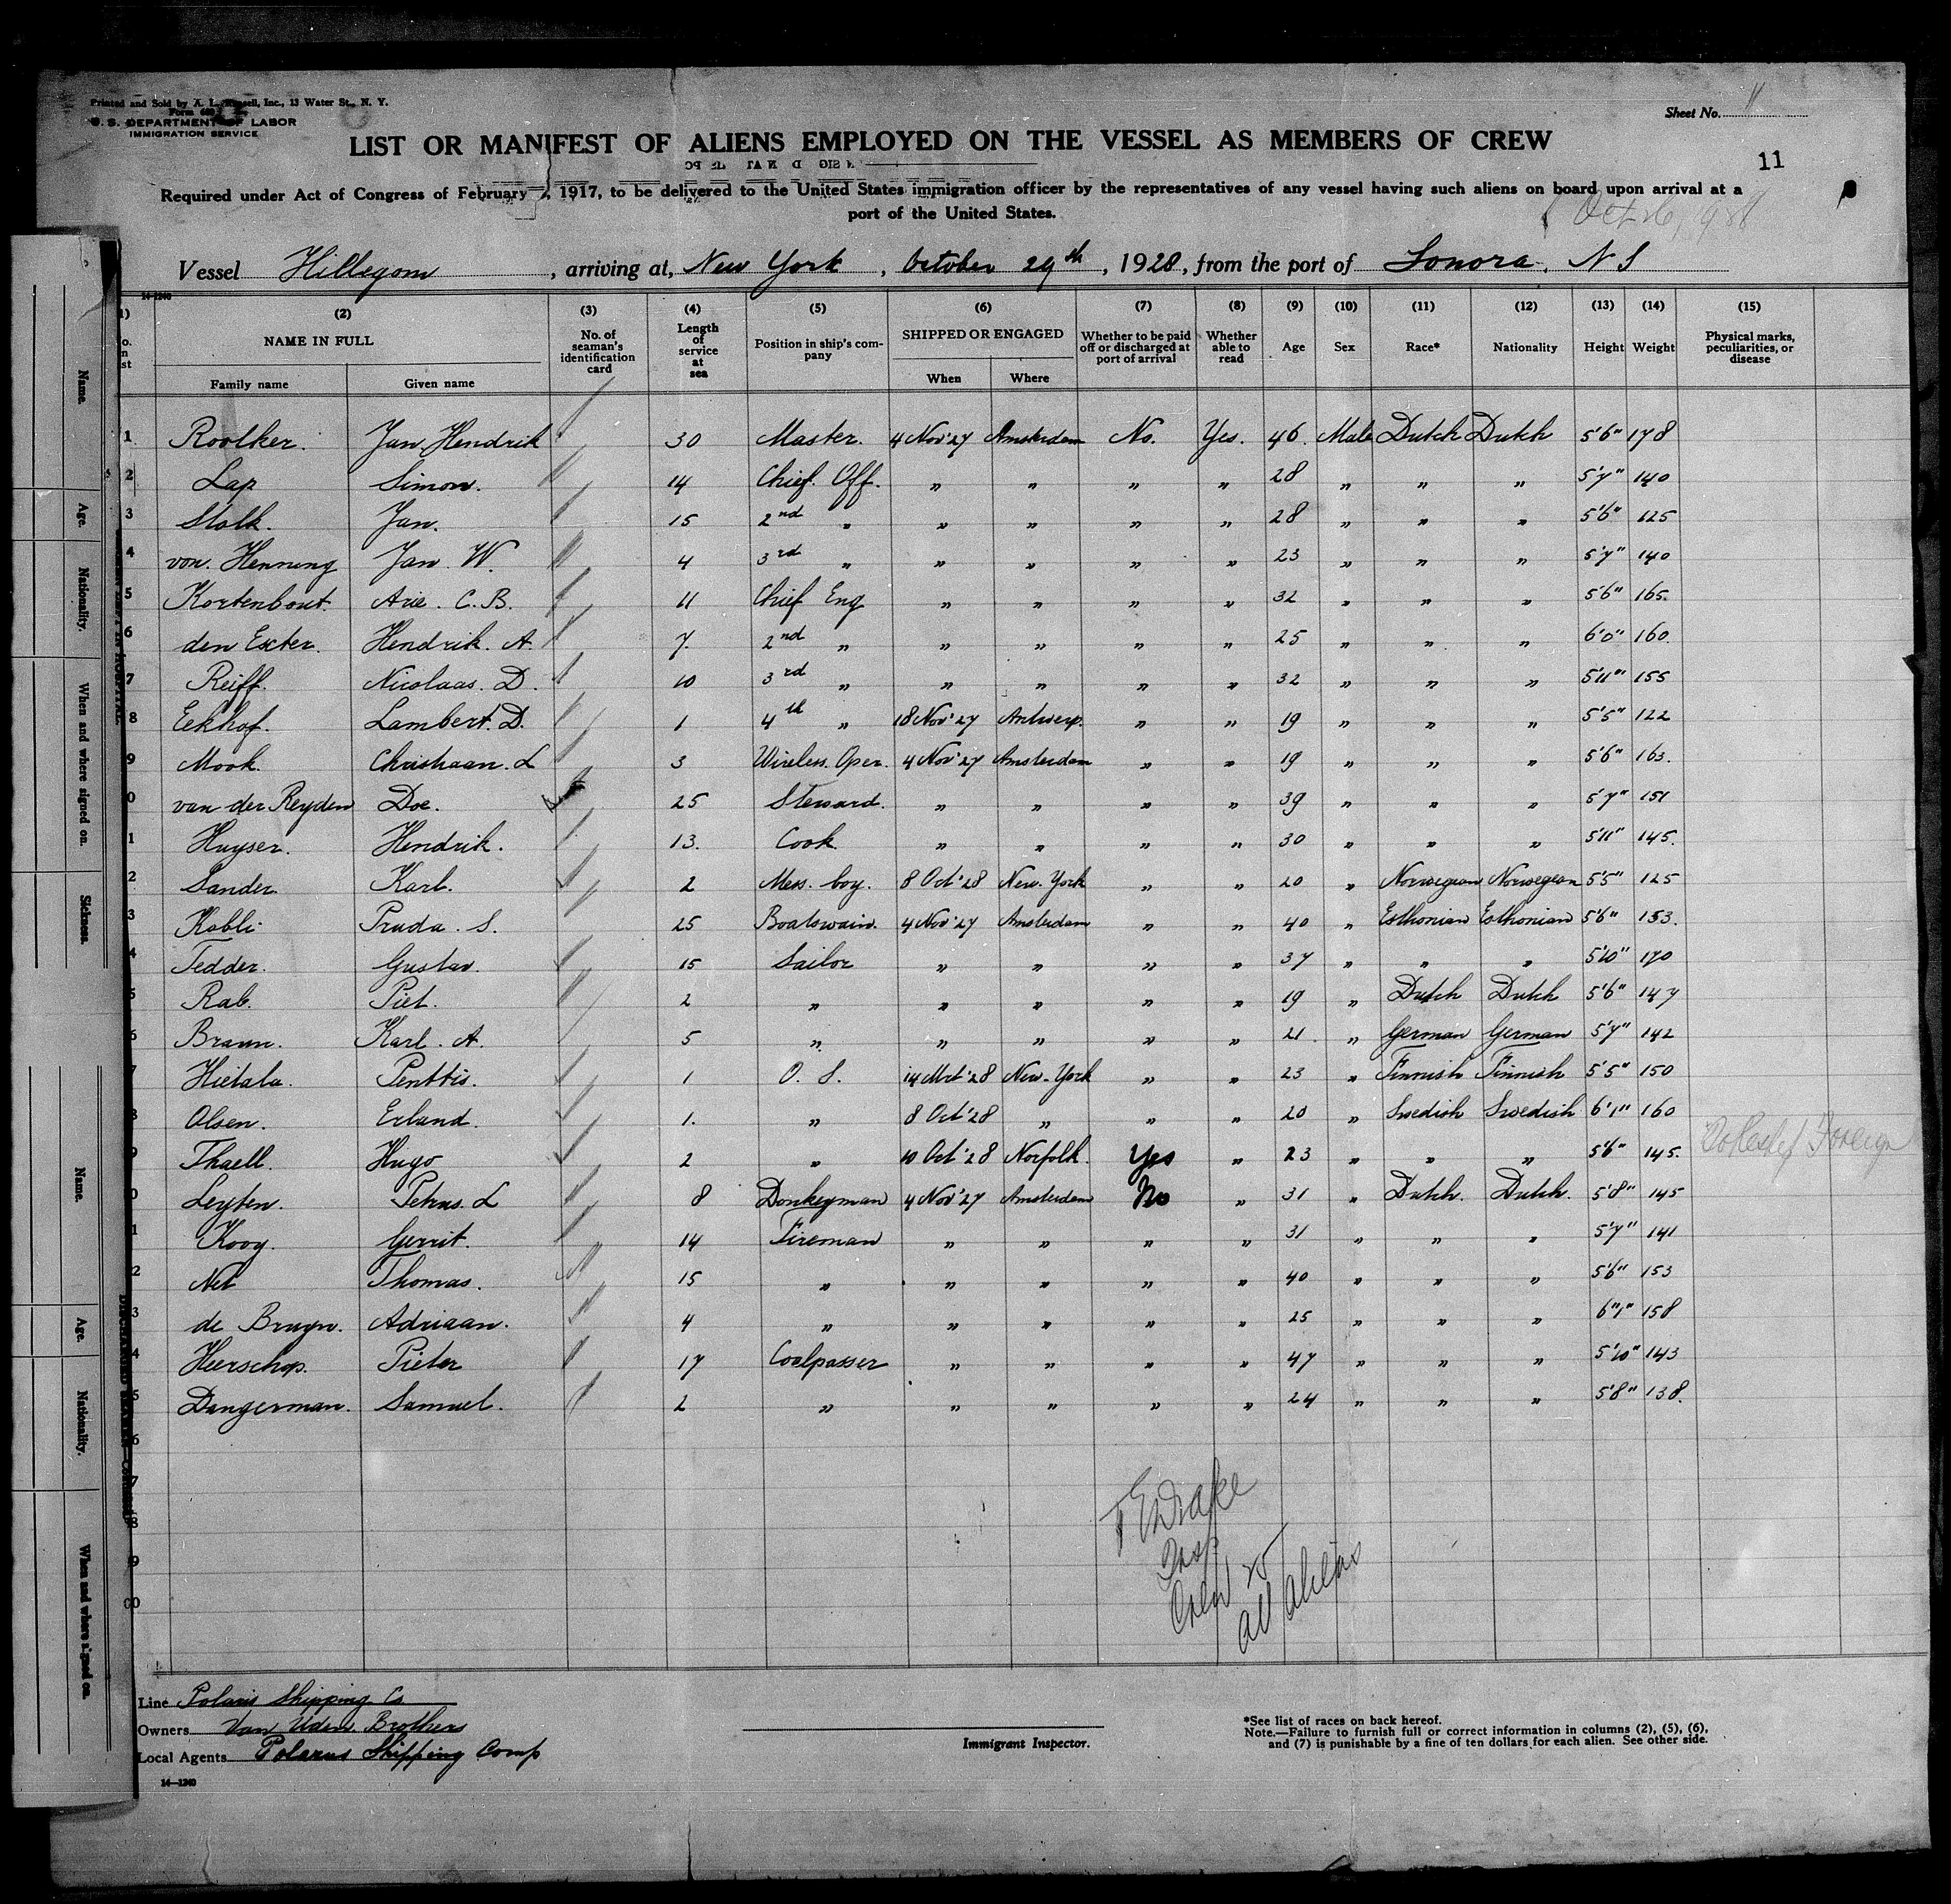 Printed and Sold by A. L. Russell, Inc., 13 Water St., N. Y.
U. S. DEPARTMENT OF LABOR
IMMIGRATION SERVICE
Sheet No. 11
LIST OR MANIFEST OF ALIENS EMPLOYED ON THE VESSEL AS MEMBERS OF CREW
11
Required under Act of Congress of February 5, 1917, to be delivered to the United States immigration officer by the representatives of any vessel having such aliens on board upon arrival at a
port of the United States.
Vessel Hillegom, arriving at, New York, October 29th, 1928, from the port of Sonora, N S
14-1240
(2) (3) (4) (5) (6) (7) (8) (9) (10) (11) (12) (13) (14) (15)
NAME IN FULL No. of seaman's identification card Length of service at sea Position in ship's company SHIPPED OR ENGAGED Whether to be paid off or discharged at port of arrival Whether able to read Age Sex Race* Nationality Height Weight Physical marks, peculiarities, or disease
Family name Given name When Where
1 Roolker. Jan Hendrik 30 Master. 4 Nov '27 Amsterdam No. Yes. 46. Male Dutch Dutch 5'6" 178
2 Lap Simon. 14 Chief. Off. " " " " 28 " " " 5'7" 140
3 Stolk. Jan. 15 2nd " " " " " 28 " " " 5'6" 125
4 von. Henning Jan. W. 4 3rd " " " " " 23 " " " 5'7" 140
5 Kortenbout. Arie. C. B. 11 Chief Eng " " " " 32 " " " 5'6" 165.
6 den Exter. Hendrik. A. 7. 2nd " " " " " 25 " " " 6'0" 160.
7 Reiff. Nicolaas. D. 10 3rd " " " " " 32 " " " 5'11" 155
8 Eekhof. Lambert. D. 1 4th " 18 Nov '27 Antwerp. " " 19 " " " 5'5" 122
9 Mook. Christiaan. L 3 Wireless. Oper. 4 Nov '27 Amsterdam " " 19 " " " 5'6" 163.
0 van der Reyden Doe. 25 Steward. " " " " 39 " " " 5'7" 151
1 Huyser. Hendrik. 13. Cook. " " " " 30 " " " 5'11" 145.
2 Sander. Karl. 2 Mess. boy. 8 Oct '28 New. York " " 20 " Norwegian Norwegian 5'5" 125
3 Kobli. Pruda. S. 25 Boatswain. 4 Nov '27 Amsterdam " " 40 " Esthonian Esthonian 5'6" 153.
4 Tedder. Gustav. 15 Sailor " " " " 37 " " " 5'10" 170
5 Rab. Piet. 2 " " " " " 19 " Dutch Dutch 5'6" 147
6 Braun. Karl. A. 5 " " " " " 21. " German German 5'7" 142
7 Hietala. Penttis. 1 O. S. '28 New-York " " 23 " Finnish Finnish 5'5" 150
8 Olsen. Erland. 1. " 8 Oct '28 " " " 20 " Swedish Swedish 6'1" 160
9 Thaell. Hugo 2 " 10 Oct '28 Norfolk. Yes " 23 " " " 5'6" 145. Foreign
0 Leyten. Petrus. L 8 Donkeyman 4 Nov '27 Amsterdam No " 31 " Dutch. Dutch. 5'8" 145
1 Kooy. Gerrit. 14 Fireman " " " " 31 " " " 5'7" 141
2 Net Thomas. 15 " " " " " 40 " " " 5'6" 153
3 de Bruyn. Adriaan. 4 " " " " " 25 " " " 6'1" 158
4 Heerschop. Pieter 17 Coalpasser " " " " 47 " " " 5'10" 143
5 Dangerman. Samuel. 2 " " " " " 24 " " " 5'8" 138.
6
7
8
9
00
T E Drake
Insp
Crew 25
All Aliens
Line Polaris Shipping Co
Owners Van Uden Brothers
Local Agents Polarus Shipping Comp
14-1240
Immigrant Inspector.
*See list of races on back hereof.
Note.—Failure to furnish full or correct information in columns (2), (5), (6),
and (7) is punishable by a fine of ten dollars for each alien. See other side.
Name.
Age.
Nationality.
When and where signed on.
Sickness.
Name.
Age.
Nationality.
When and where signed on.